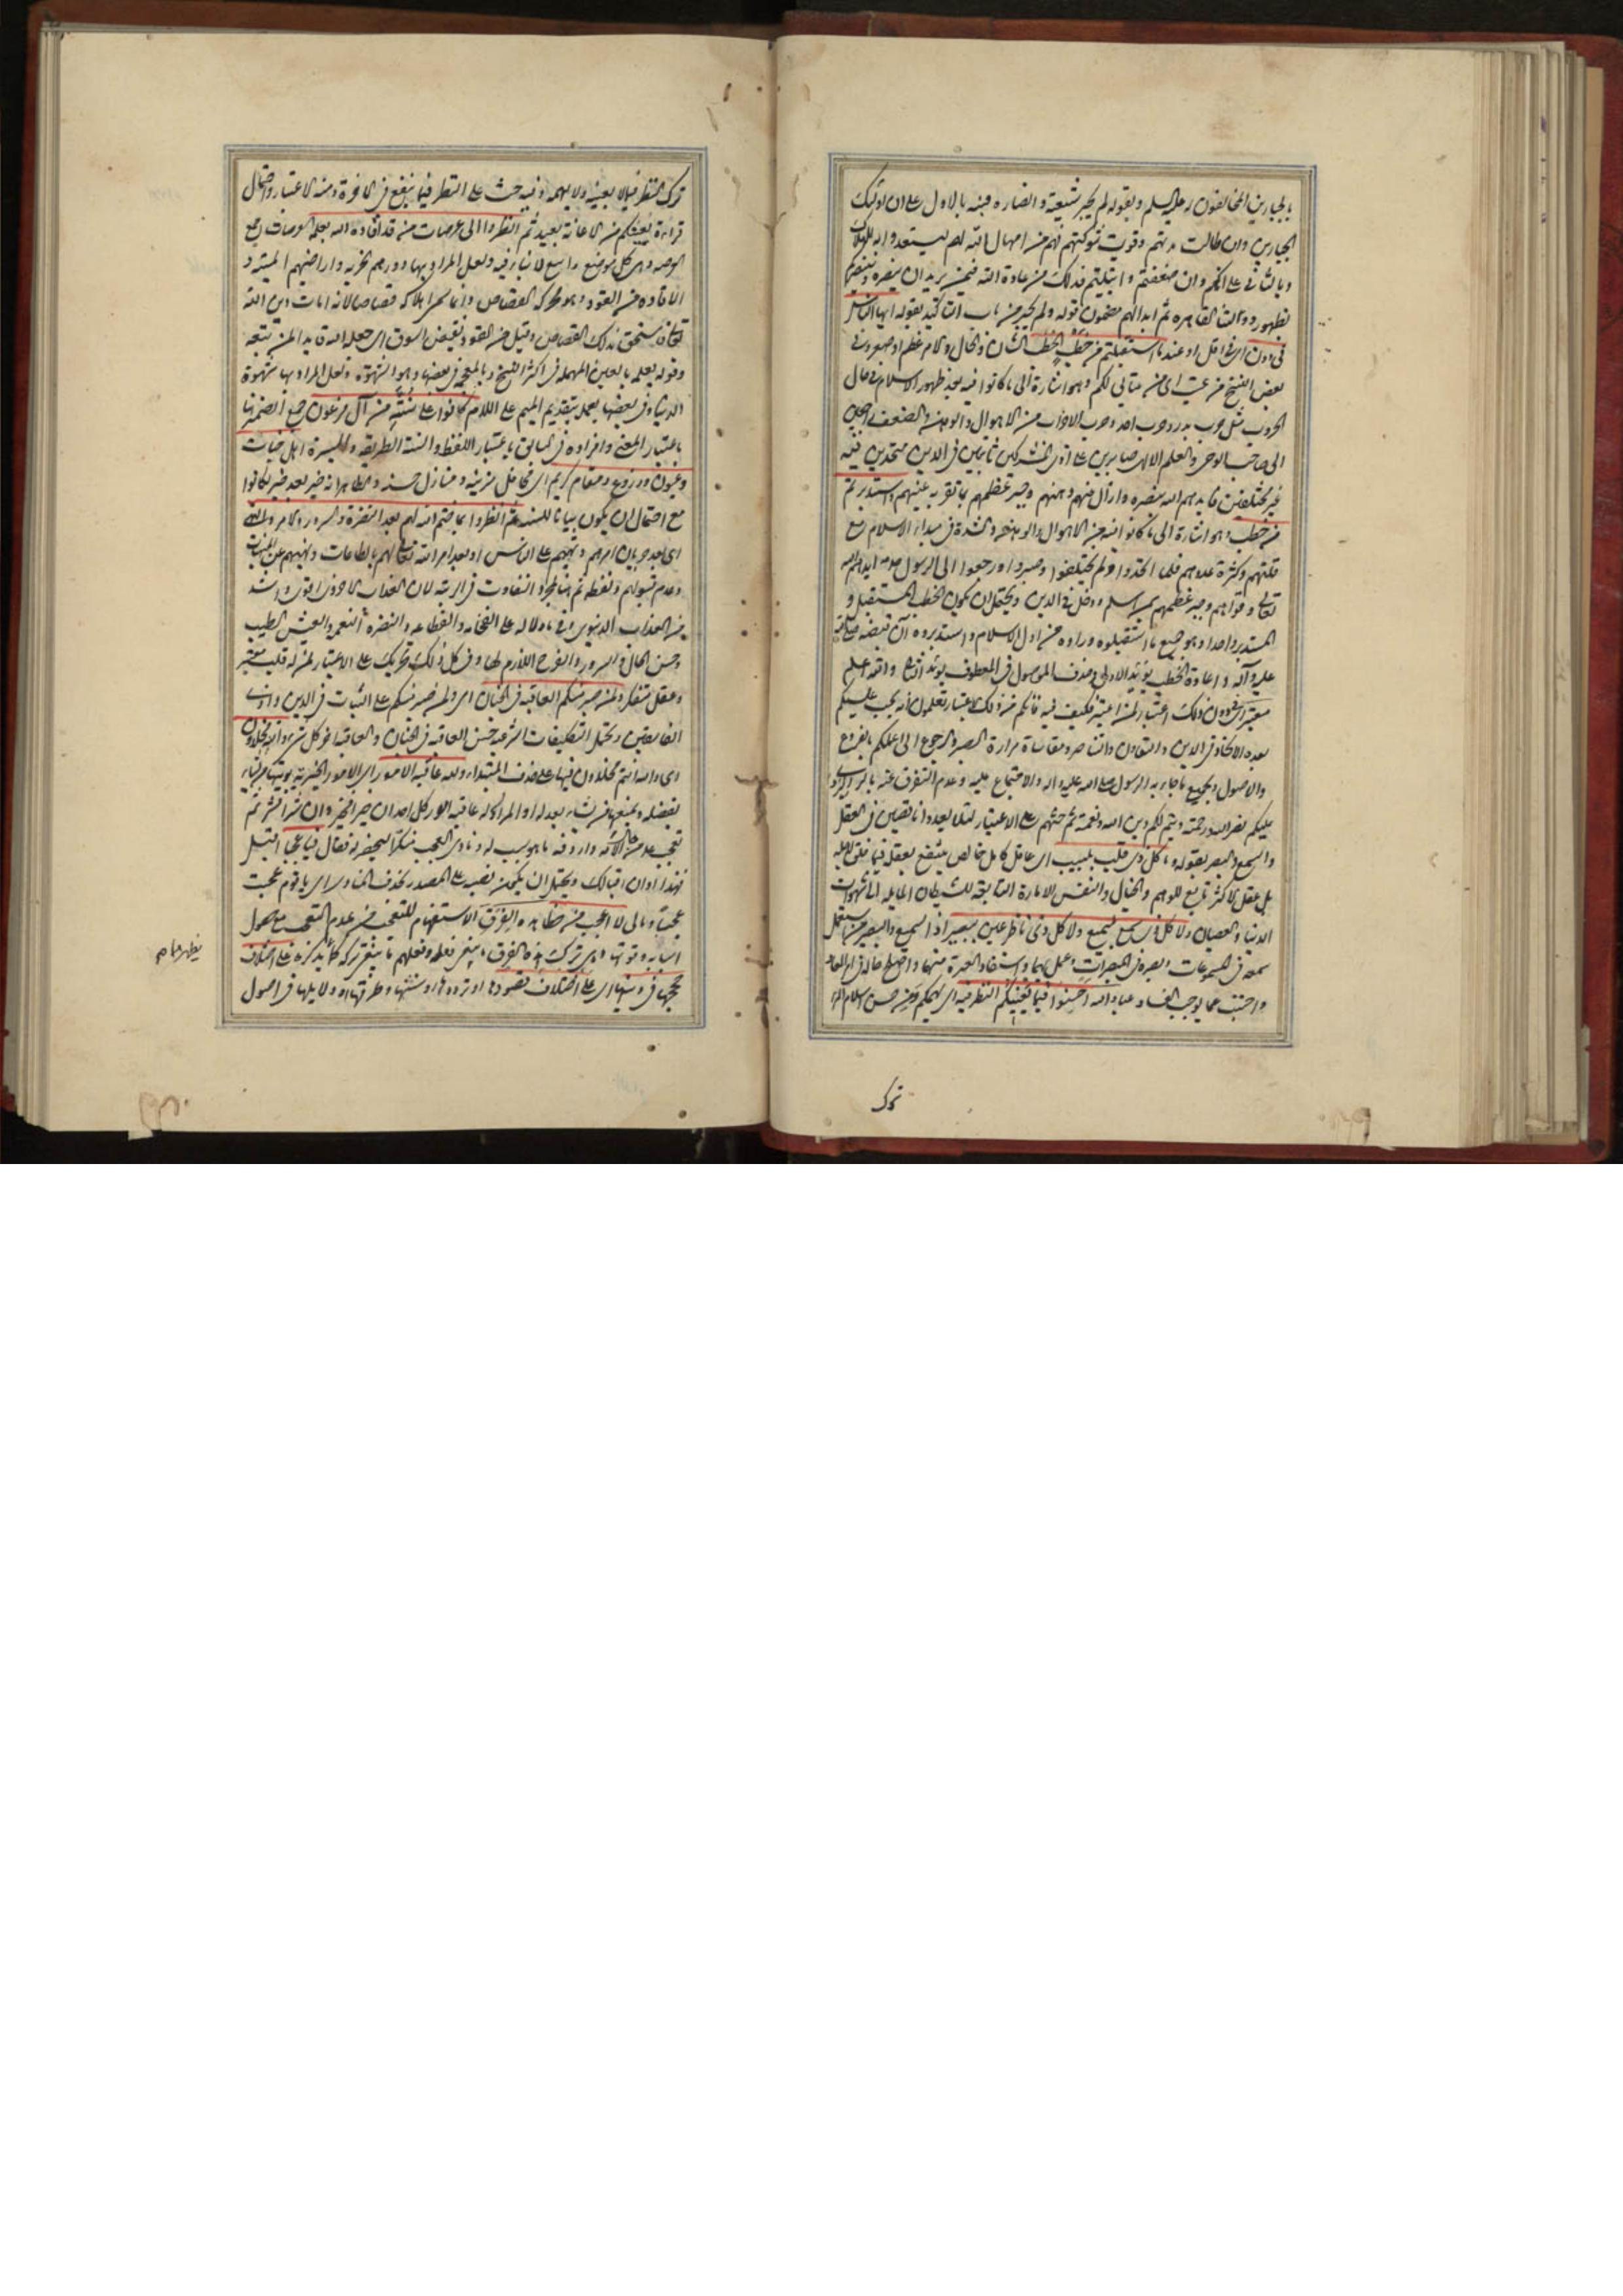 بالجبارين المخالفون له عليه السلم وبقوله لم يجبر شيعته وانصاره فنبه بالاول على ان اولئك
الجبارين وان طالت مدتهم وقويت شوكتهم فهم من امهال الله لهم ليستعدوا به للهلاك
وبالثاني على انكم وان ضعفتم وابتليتم فذلك من عادة الله فيمن يريد ان ينصره
بظهور دولتنا القاهرة ثم ابدالهم مضمون قوله ولم يجبر من باب التاكيد بقوله ايها الناس
في دون اى في اقل او عند ما استقبلتم من خطب الخطب الشان والحال والامر عظم او صغر وفى
بعض النسخ من عتب اى من عتابي لكم وهو اشارة الى ما كانوا فيه بعد ظهور الاسلام في حال
الحروب مثل حرب بدر وحرب احد وحرب الاحزاب من الاهوال والوهن والضعف راجعين
الى صاحب الوحى والعلم الالهى صابرين على اذى المشركين ثابتين في الدين متحدين فيه
غير مختلفين فايدهم الله بنصره وازال منهم وهنهم وجبر عظمهم بما تقر به عينهم واستدبرتم
من خطب وهو اشارة الى ما كانوا فيه من الاهوال والوهن والشدة في مبدا الاسلام مع
قلتهم وكثرة عدوهم فلما اتحدوا ولم يختلفوا وصبروا ورجعوا الى الرسول ايدهم الله
تعالى وقواهم وجبر عظمهم بمن اسلم ودخل في الدين ويحتمل ان يكون الخطب المستقبل و
المستدبر واحدا وهو جميع ما استقبلوه وراوه من اول الاسلام واستدبروه آن قبضه صلى الله
عليه وآله واعادة الخطب يؤيد الاول وحذف الموصول في المعطوف يؤيد الثاني والله اعلم
معتبر اى في دون ذلك اعتبار لمن اعتبر فكيف فيه فانكم من ذلك الاعتبار تعلمون انه يجب عليكم
بعده الاتحاد في الدين والتعاون والتناصر ومقاساة مرارة الصبر والرجوع الى اعلمكم بالفروع
والاصول وبجميع ما جاء به الرسول صلى الله عليه واله والاجتماع عليه وعدم التفرق عنه
عليكم نصر الله ورحمته ويتم لكم دين الله ونعمته ثم حثهم على الاعتبار لئلا يعدوا ناقصين في العقل
والسمع والبصر بقوله وما كل ذى قلب بلبيب اى عاقل كامل خالص ينتفع بعقله فيما خلق لاجله
بل عقل الاكثر تابع للوهم والخيال والنفس الامارة التابعة للشيطان المايلة الى الشهوات
الدنيا والعصيان ولا كل ذى سمع بسميع ولا كل ذى ناظر عين ببصير اذ السميع والبصير من استعمل
سمعه في المسموعات وبصره في المبصرات وعمل بهما واستفاد العبرة منهما واصلح حاله في امر المعاد
واجتنب عما يوجب الفساد عباد الله احسنوا فيما يعنيكم النظر فيه اى يهمكم ومن حسن اسلام المرء
ترك
ترك النظر فيما لا يعنيه ولا يهمه وفيه حث على النظر فيما ينفع في الاخرة ومنه الاعتبار واحتمال
قراءة يعينكم من الاعانة بعيد ثم انظروا الى عرصات من قد اقاده الله بعلمه العرصات جمع
العرصة وهى كل موضع واسع لا بناء فيه ولعل المراد بها دورهم الخربة واراضيهم الميتة و
الاقادة من القود وهو محركة القصاص وانما سمى اهلاكه قصاصا لانه امات دين الله
تعالى فاستحق بذلك القصاص وقيل من القود نقيض السوق اى جعله الله قايدا لمن تبعه
وقوله بعلمه بالعين المهملة في اكثر النسخ وبالمعجمة في بعضها وهو الشهوة ولعل المراد بها شهوة
الدنيا وفى بعضها بعمله بتقديم الميم على اللام كانوا على سنة من آل فرعون جمع الضمير هنا
باعتبار المعنى وافراده في السابق باعتبار اللفظ والسنة الطريقة والسيرة اهل جنات
وعيون وزروع ومقام كريم اى محافل مزينة ومنازل حسنة والظاهر انه خبر بعد خبر لكانوا
مع احتمال ان يكون بيانا للسنة ثم انظروا بما ختم الله لهم بعد النضرة والسرور والامر والنهى
اى بعد جريان امرهم ونهيهم على الناس او بعد امر الله تعالى لهم بالطاعات ونهيهم عن المنهيات
وعدم قبولهم ولفظة ثم هنا لمجرد التفاوت في الرتبة لان العذاب الاخروى اقوى واشد
من العذاب الدنيوى وفى ما دلالة على الفخامة والفظاعة والنضرة النعمة والعيش الطيب
وحسن الحال والسرور والفرح اللازم لها وفى كل ذلك تحريك على الاعتبار لمن له قلب معتبر
وعقل متفكر ولمن صبر منكم العاقبة في الجنان اى ولمن صبر منكم على الثبات في الدين واذى
الفاسقين وتحمل التكليفات الشرعية حسن العاقبة في الجنان والعاقبة آخر كل شئ والله مخلدون
اى والله انتم مخلدون فيها على حذف المبتدا ولله عاقبة الامور اى الامور الخيرية يؤتيها من يشاء
بفضله ويمنعها من يشاء بعدله او المراد له عاقبة امور كل احد ان خيرا فخير وان شرا فشر ثم
تعجب عليه السلام من حال الامة وارادفه ما هو سبب له ونادى العجب منكرا ليحضر له فقال فيا عجبا اقبل
فهذا اوان اقبالك ويحتمل ان يكون نصبه على المصدر بحذف المنادى اى يا قوم عجبت
عجبا ومالى لا اعجب من خطأ هذه الفرق الاستفهام للتعجب من عدم التعجب مع حصول
اسبابه وقوتها وهى ترك هذه الفرق ما ينبغى فعله وفعلهم ما ينبغى تركه كما يذكره على اختلاف
حججها في دينها اى على اختلاف قصودها او تردداتها او سننها وطرقها او دلايلها في اصول